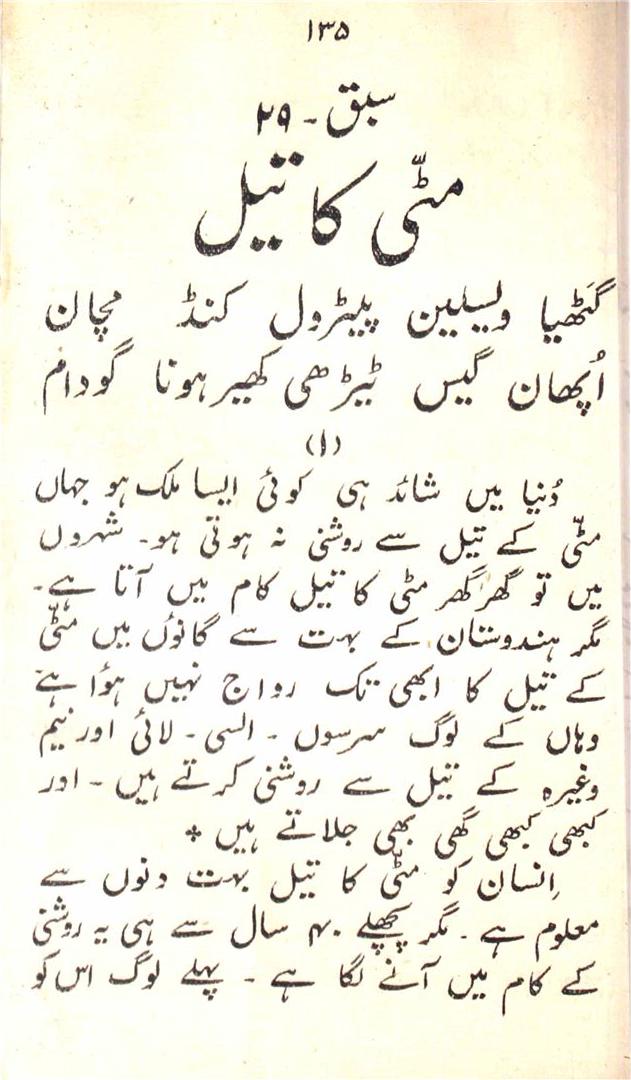 ۱۳۵
سبق - ۲۹
مٹّی کا تیل
گٹھیا ویسلین پیٹرول کنڈ مچان
اُپھان گیس ٹیڑھی کھیر ہونا گودام
(۱)
دُنیا میں شائد ہی کوئی ایسا ملک ہو جہاں
مٹّی کے تیل سے روشنی نہ ہوتی ہو۔ شہروں
میں تو گھر گھر مٹی کا تیل کام میں آتا ہے۔
مگر ہندوستان کے بہت سے گانوٗں میں مٹّی
کے تیل کا ابھی تک رواج نہیں ہوٗا ہے
وہاں کے لوگ سرسوں ۔ السی ۔ لائی اور نیم
وغیرہ کے تیل سے روشنی کرتے ہیں ۔ اور
کبھی کبھی گھی بھی جلاتے ہیں *
اِنسان کو مٹّی کا تیل بہت دنوں سے
معلوم ہے ۔ مگر پچھلے ۴۰ سال سے ہی یہ روشنی
کے کام میں آنے لگا ہے ۔ پہلے لوگ اس کو